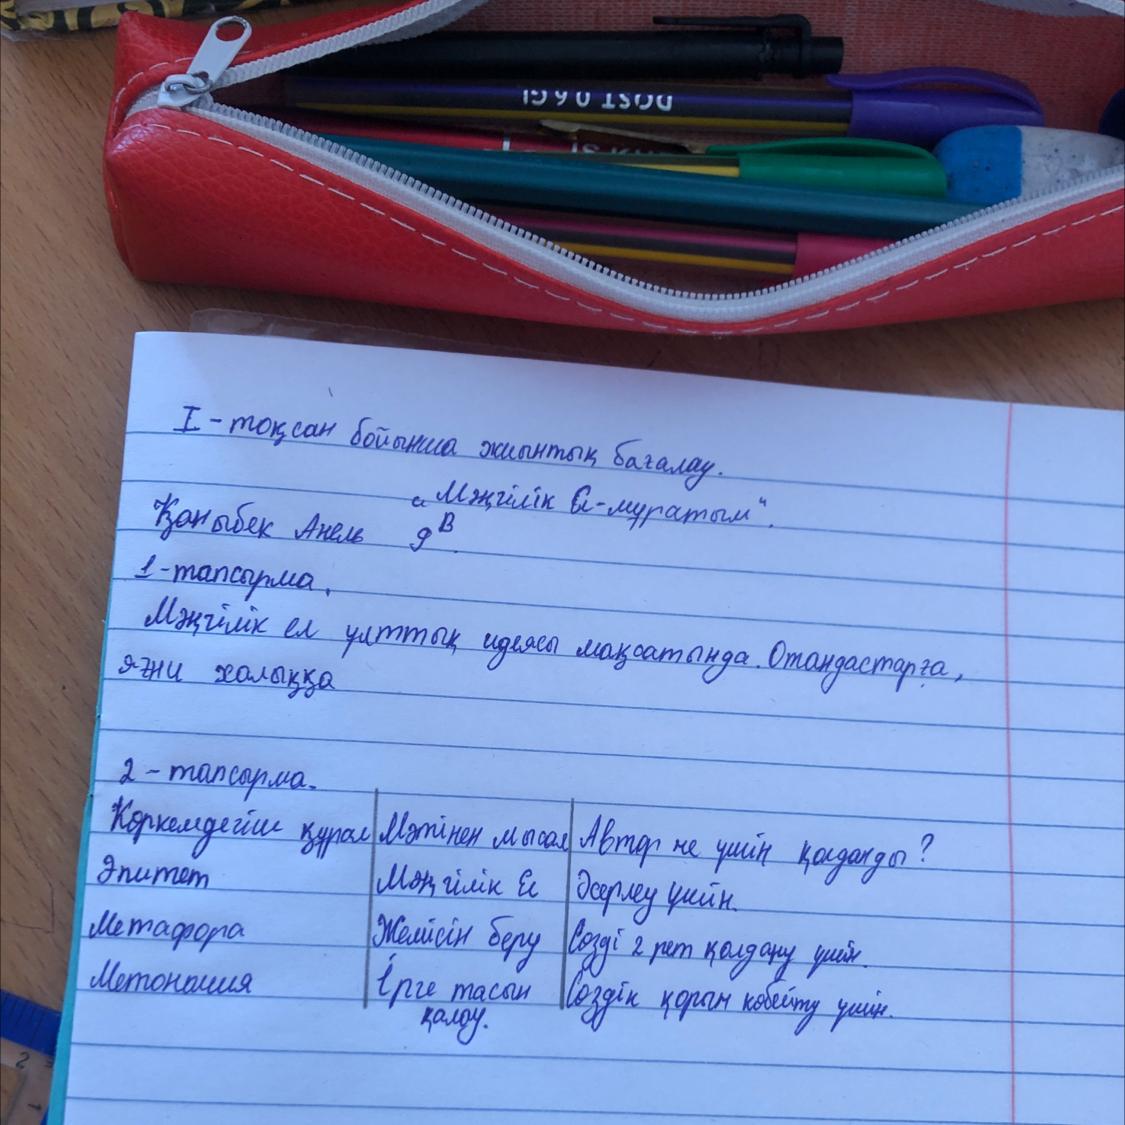 DOST 0.6 GI
I - тоқсан бойынша жиынтық бағалау.
„Мәңгілік Ел-мұратым“.
Қаныбек Анель 9В
1-тапсырма.
Мәңгілік ел ұлттық идеясы мақсатында. Отандастарға,
яғни халыққа
2 - тапсырма.
Көркемдегіш құрал Мәтінен мысал Автор не үшін қолданды?
Эпитет Мәңгілік Ел Әсерлеу үшін.
Метафора Жемісін беру Сөзді 2 рет қолдану үшін.
Метонамия Ірге тасын Сөздік қорын көбейту үшін.
қалау.
2